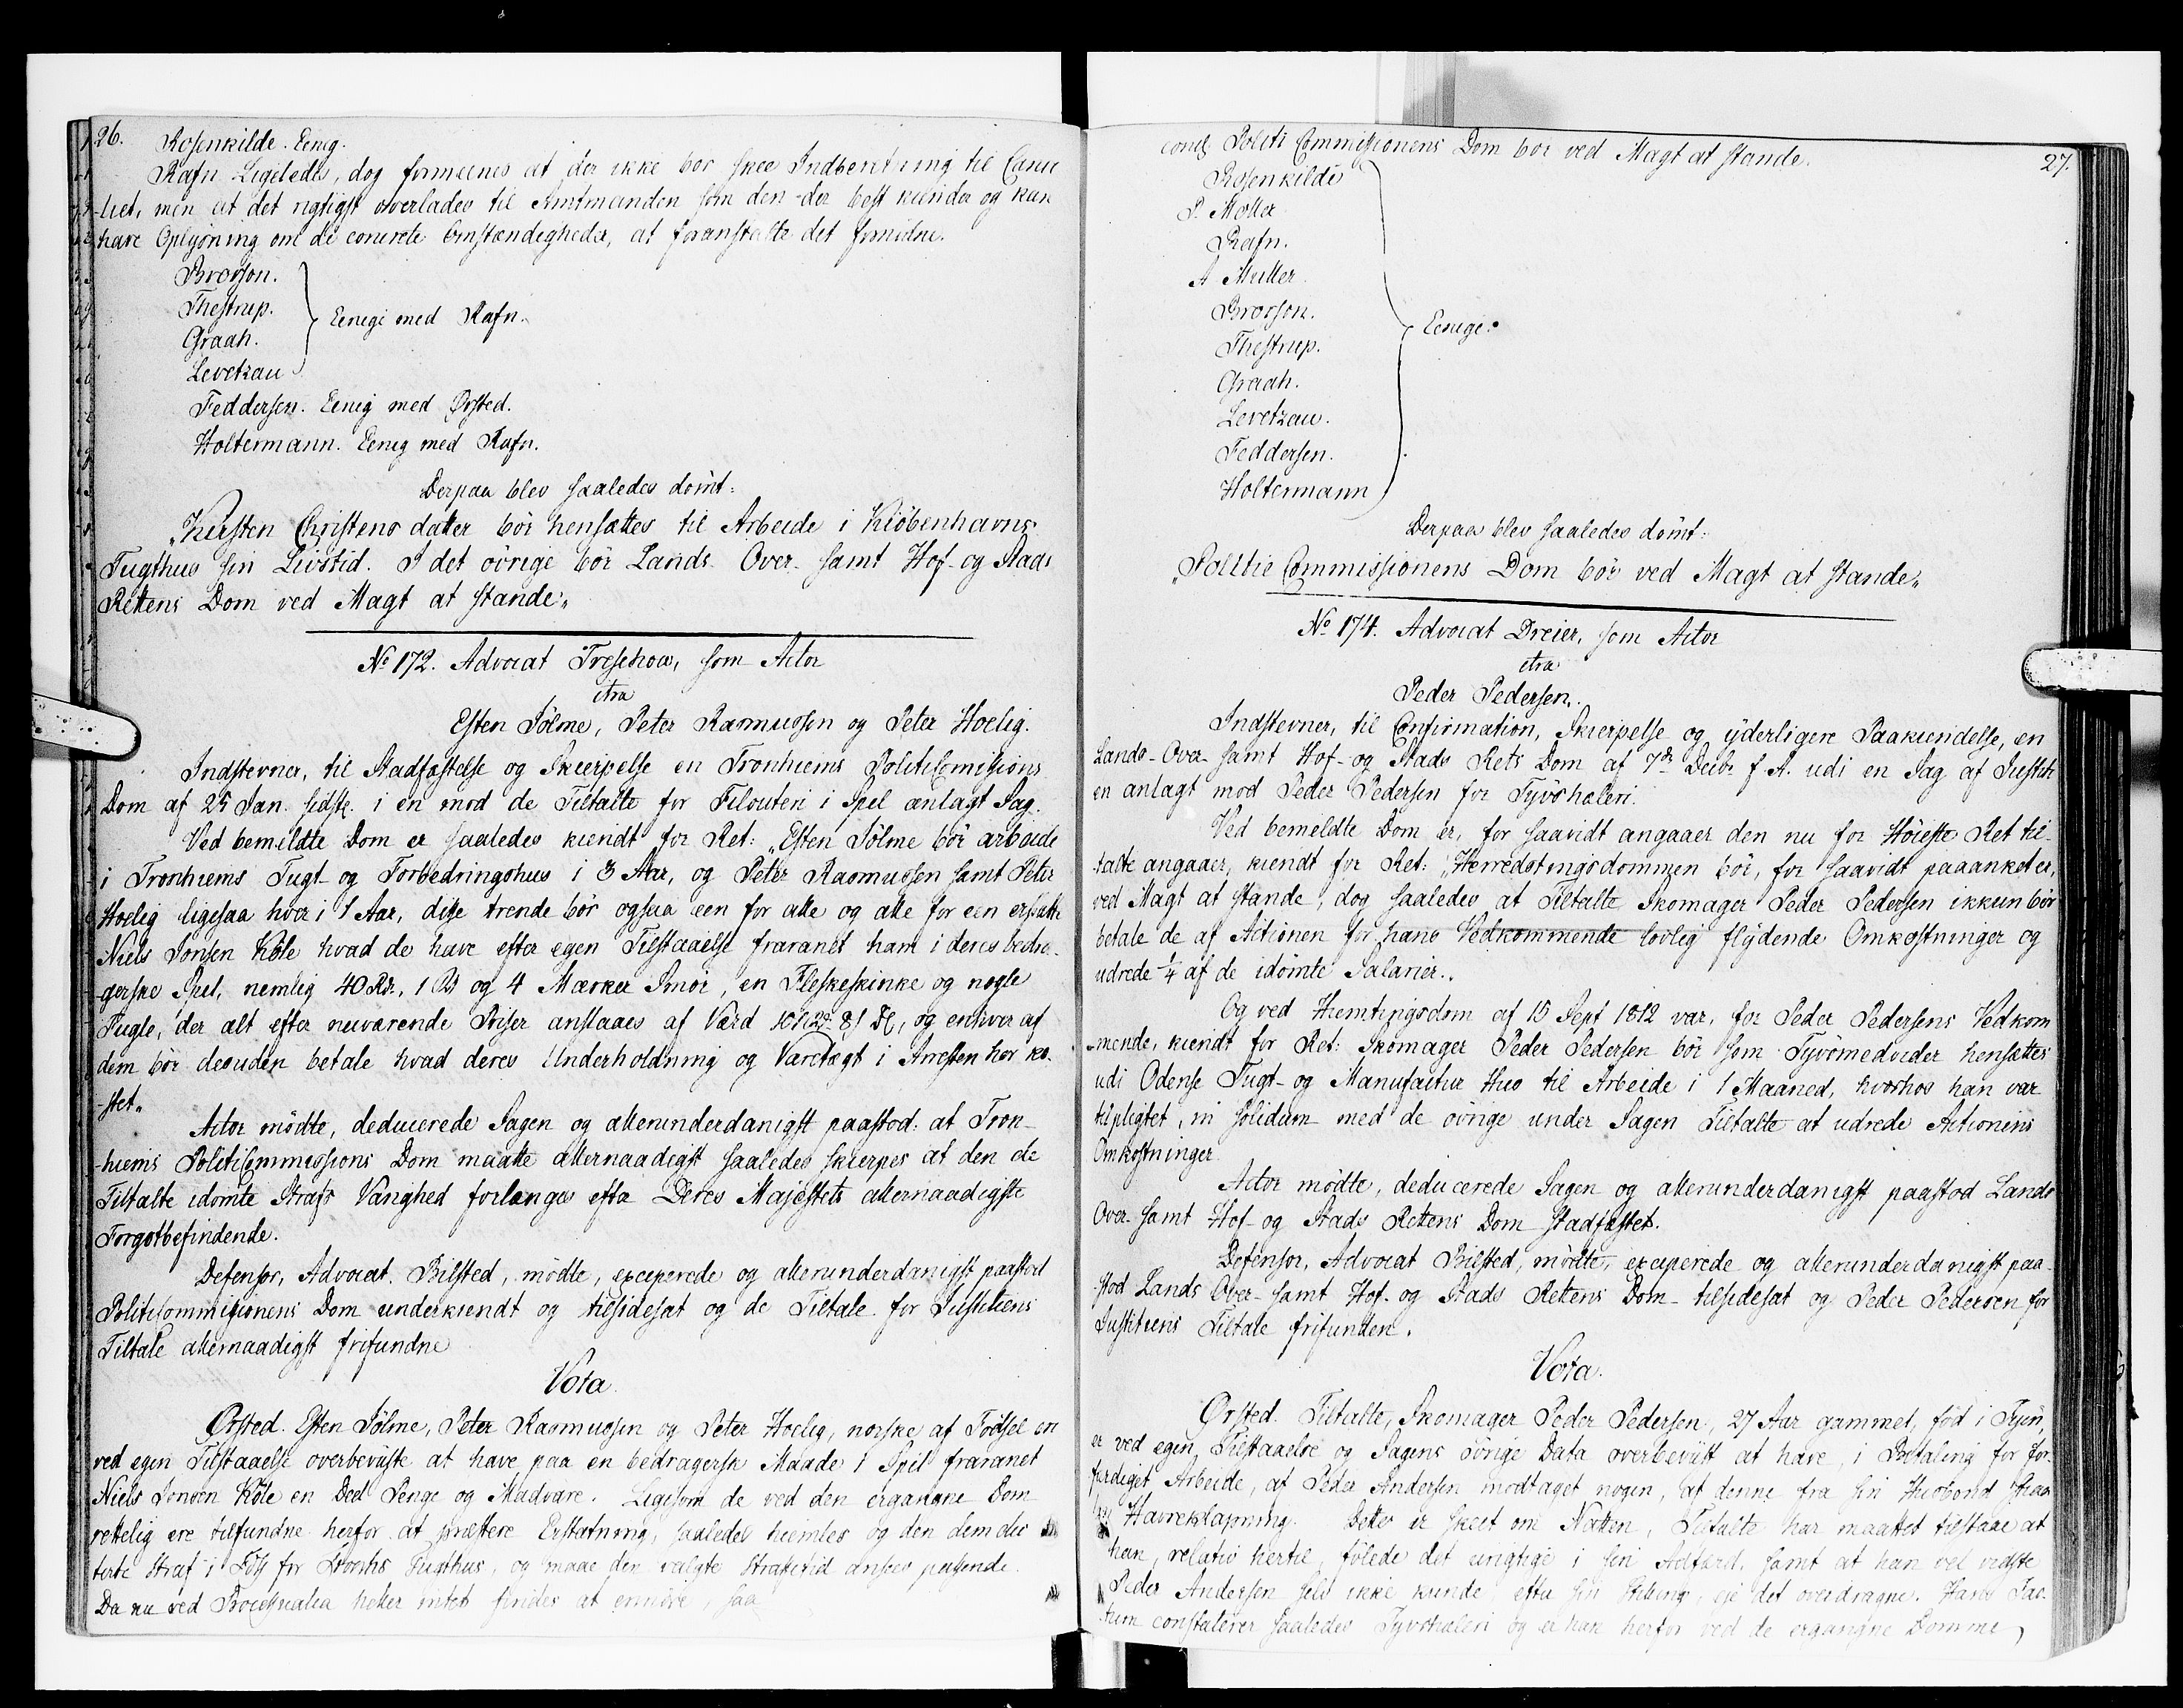 26. Rosenkilde. Eenig.
Rafn. Ligeledes, dog formeenes at der ikke bör skee Indberetning til Cancel-
-liet, men at det rigtigst overlades til Amtmanden som den der best kiender og kan
have Oplysning om de concrete Omstændigheder, at foranstalte det fornödne.
Brorson.
Thestrup.
Graah.
Levetzau
Eenige med Rafn.
Feddersen. Eenig med Ørsted.
Holtermann. Eenig med Rafn.
Derpaa blev saaledes dömt:
„Kirsten Christensdatter bör hensættes til Arbeide i Kiöbenhavns
Tugthus sin Livstid. I det övrige bör Lands- Over- samt Hof- og Stads
Rettens Dom ved Magt at stande„
No 172. Advocat Treschow, som Actor
ctra
Esten Sölme, Peter Rasmussen og Peter Hoelig.
Indstevner, til Stadfæstelse og Skierpelse en Tronhiems Politicommissions
Dom af 25 Jan. sidstl. i en mod de Tiltalte for Filouteri i Spil anlagt Sag.
Ved bemeldte Dom er saaledes kiendt for Ret: „Esten Sölme bör arbeide
i Tronhiems Tugt- og Forbedringshus i 3 Aar, og Peter Rasmussen samt Peter
Hoelig ligesaa hver i 1 Aar, disse trende bör ogsaa een for alle og alle for een erstatte
Niels Jonsen Köle hvad de have efter egen Tilstaaelse fravanet ham i deres bedra-
-gerske Spil, nemlig 40 Rd., 1 Pd og 4 Mærker Smör, en Fleskeskinke og nogle
Fugle, der alt efter nuværende Priser anslaaes af Værd og enhver af
dem bör desuden betale hvad deres Underholdning og Varetægt i Arresten har ko-
-stet„
Actor mödte, deducerede Sagen og allerunderdanigst paastod: at Tron-
-hiems Politicommissions Dom maatte allernaadigst saaledes skierpes at den de
Tiltalte idömte Strafs Varighed forlænges efter Deres Majestets allernaadigste
Forgotbefindende.
Defensor, Advocat Bilsted, mödte, exciperede og allerunderdanigst paastod
Politicommissionens Dom underkiendt og tilsidesat og de Tiltale for Justitiens
Tiltale allernaadigst frifundne
Vota.
Ørsted. Esten Sölme, Peter Rasmussen og Peter Hoelig, norske af Födsel ere
ved egen Tilstaaelse overbeviiste at have paa en bedragersk Maade i Spil fravanet
Niels Jonsen Köle en Deel Penge og Madvare. Ligesom de ved den ergangne Dom
rettelig ere tilfundne herfor at præstere Erstatning, saaledes hiemles og den dem dic-
terte Straf i for Tugthus, og maae den valgte Strafetid ansees passende.
Da nu ved Processualia heller intet findes at erindre, saa
conf. Politi Commissionens Dom bör ved Magt at stande.
27.
Rosenkilde
P. Möller
Rafn.
A Müller
Brorson.
Thestrup.
Graah.
Levetzau.
Feddersen.
Holtermann
Eenige.
Derpaa blev saaledes dömt:
„Politie Commissionens Dom bör ved Magt at stande„
No 174. Advocat Dreier, som Actor
ctra
Peder Pedersen.
Indstevner, til Confirmation, Skierpelse og yderligere Paakiendelse, en
Lands- Over- samt Hof- og Stads Rets Dom af 7de Decbr f. A. udi en Sag af Justiti-
en anlagt mod Peder Pedersen for Tyvshæleri.
Ved bemeldte Dom er, for saavidt angaaer den nu for Höieste Ret til-
talte angaaer, kiendt for Ret: „Herredstingsdommen bör, for saavidt paaanket er,
ved Magt at stande, dog saaledes at Tiltalte Skomager Peder Pedersen ikkun bör
betale de af Actionen for hans Vedkommende lovlig flydende Omkostninger og
udrede 1/4 af de idömte Salarier.
Og ved Hiemtingsdom af 15 Sept 1812 var, for Peder Pedersens Vedkom
-mende, kiendt for Ret: Skomager Peder Pedersen bör som Tyvsmedvider hensættes
udi Odense Tugt- og Manufactur Hus til Arbeide i 1 Maaned, hvorhos han var
tilpligtet, in solidum med de övrige under Sagen Tiltalte at udrede Actionens
Omkostninger
Actor mödte, deducerede Sagen og allerunderdanigst paastod Lands
Over- samt Hof- og Stads Rettens Dom stadfæstet.
Defensor, Advocat Bilsted, mödte, exciperede og allerunderdanigst paa-
-stod Lands Over- samt Hof- og Stads Rettens Dom tilsidesat og Peder Pedersen for
Justitiens Tiltale frifunden.
Vota.
Ørsted. Tiltalte, Skomager Peder Pedersen, 27 Aar gammel, föd i Fyen,
er ved egen Tilstaaelse og Sagens övrige Data overbeviist at have, i Betaling for for-
færdiget Arbeide, af Peder Andersen modtaget nogen, af denne fra sin Huusbond
Havre Dette er skeet om Natten, Tiltalte har maattet tilstaae at
han, relativ hertil, fölede det urigtige i sin Adfærd, samt at han vel vidste
Peder Andersen selv ikke kunde, efter sin Stilling, eje det overdragne. Hans Fac-
tum constaterer saaledes Tyvshæleri og er han herfor ved de ergangne Domme,